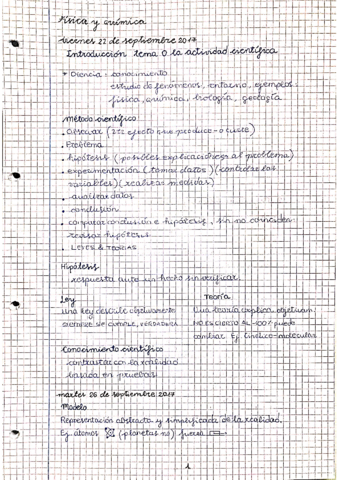 Física y química
viernes 22 de septiembre 2017
Introducción tema 0 la actividad científica
Ciencia: conocimiento
estudio de fenómenos, entorno, ejemplos:
física, química, biología, geología
Método científico
. Observar (efecto que produce
. Problema
. hipótesis (posibles explicaciones al problema)
. experimentación (tomar datos) (controlar las
variables) (realizar medidas)
. analizar datos
. conclusión
. comparar conclusión e hipótesis, si no coinciden
revisar hipótesis
. LEYES & TEORÍAS
Hipótesis
respuesta ante un hecho sin verificar
Ley
una ley describe objetivamente
SIEMPRE SE CUMPLE, VERDADERA
Teoría
Una teoría explica objetivam.
NO ES CIERTO AL 100% puede
cambiar Ej. Cinético-molecular
Conocimiento científico
contrastar con la realidad
basada en pruebas
martes 26 de septiembre 2017
Modelo
Representación abstracta y simplificada de la realidad.
Ej. átomos (planetas no) fuerza
1